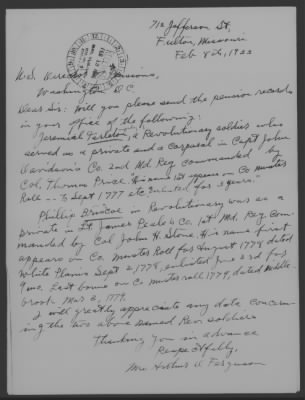 712 Jefferson St,
Fulton, Missouri
Feb 8th, 1933
U.S. Director Pensions,
Washington, D.C.
Dear Sir: Will you please send the pension records
in your office of the following:
Jeremiah Tarleton, a Revolutionary soldier who
served as a private and a Corporal in Capt John
Davidson's Co. 2nd Md. Reg commanded by
Col. Thomas Price. His name 1st appears on Co. muster
Roll — to Sept 1777 etc Enlisted for 3 years."
Phillip Briscoe in Revolutionary was a
private in Lt. James Peale's Co. 1st Md. Reg. Com-
manded by Col John H. Stone. His name first
appears on Co. muster Roll for August 1778 dated
White Plains Sept 2, 1778, enlisted June 23rd for
9 mo. Last borne on Co muster roll 1779, dated Middle-
brook Mar 2, 1779.
I will greatly appreciate any data concern-
ing the two above named Rev. soldiers
Thanking you in advance
Respectfully,
Mrs Arthur U. Ferguson